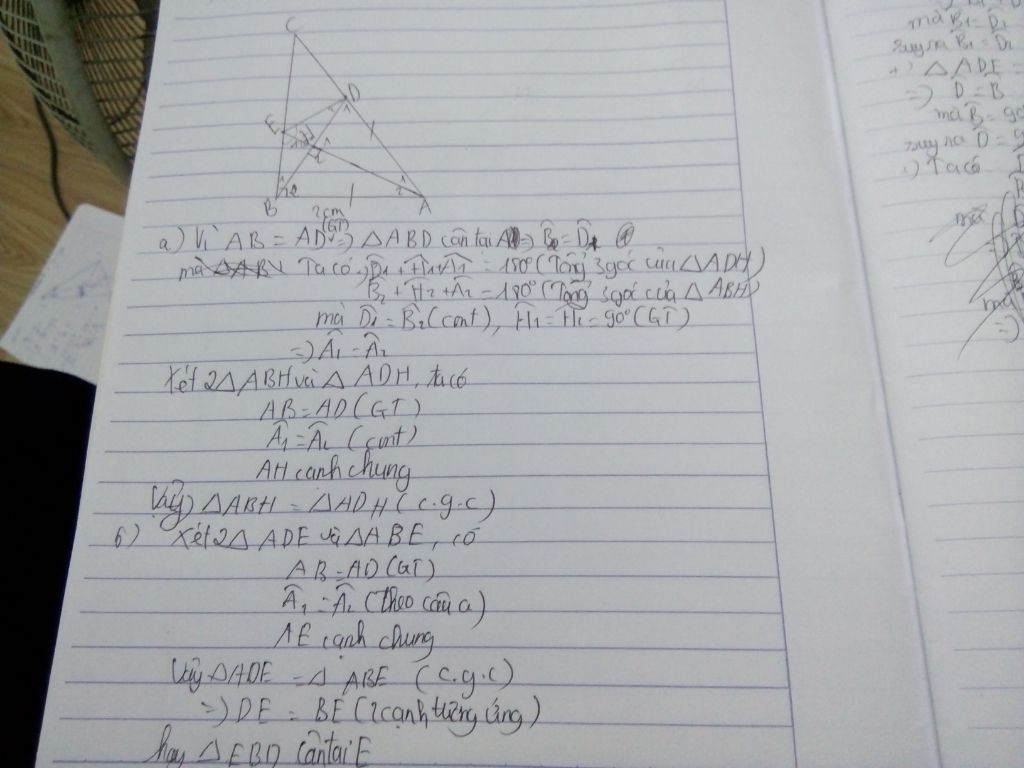 C
D
E
B
A
2cm
(GT)
a) Vì AB = AD => △ABD cân tại A => B̂₂ = D̂₁
mà Ta có: D̂₁ + Ĥ₁ + Â₁ = 180° (Tổng 3 góc của △ADH)
B̂₂ + Ĥ₂ + Â₂ = 180° (Tổng 3 góc của △ABH)
mà D̂₁ = B̂₂ (cmt), Ĥ₁ = Ĥ₂ = 90° (GT)
=> Â₁ = Â₂
Xét 2△ABH và △ADH, ta có
AB = AD (GT)
Â₁ = Â₂ (cmt)
AH cạnh chung
Vậy △ABH = △ADH (c.g.c)
b) Xét 2△ ADE và △ABE, có
AB = AD (GT)
Â₁ = Â₂ (Theo câu a)
AE cạnh chung
Vậy △ADE = △ ABE (c.g.c)
=> DE = BE (2 cạnh tương ứng)
hay △EBD cân tại E
mà B̂₁ = D̂₂
suy ra
△ ADE =
=> D = B
mà B̂ = 90
suy ra D̂ = 9
Ta có
mà
=>